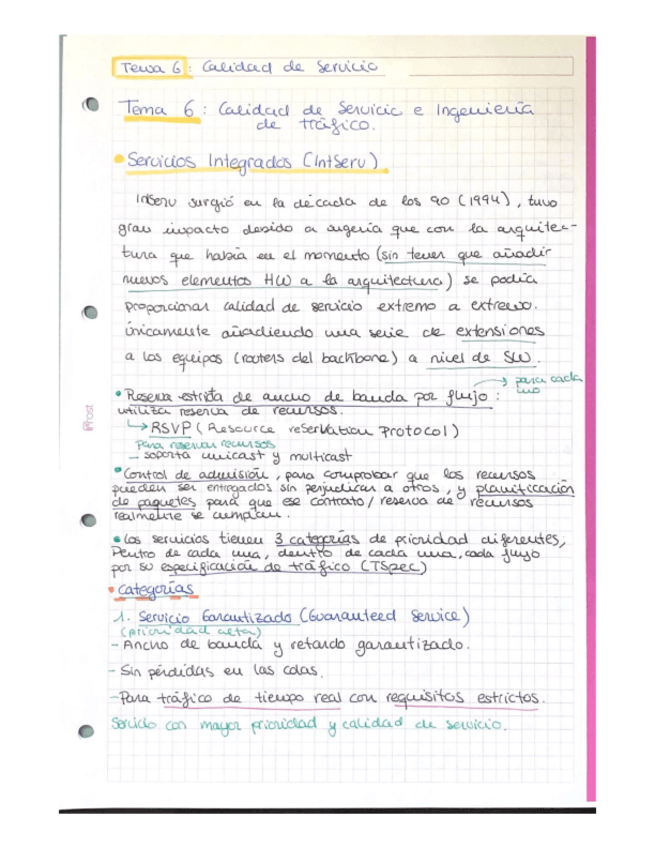 Tema 6: Calidad de Servicio
Tema 6: Calidad de Servicio e Ingeniería
de tráfico.
• Servicios Integrados (IntServ)
IntServ surgió en la década de los 90 (1994), tuvo
gran impacto debido a sugería que con la arquitec-
tura que había en el momento (sin tener que añadir
nuevos elementos HW a la arquitectura) se podía
proporcionar calidad de servicio extremo a extremo.
únicamente añadiendo una serie de extensiones
a los equipos (routers del backbone) a nivel de SW.
• Reserva estricta de ancho de banda por flujo: → para cada
uno
utiliza reserva de recursos.
↳ RSVP (Resource reserVation Protocol)
para reservar recursos
- soporta unicast y multicast
• Control de admisión, para comprobar que los recursos
pueden ser entregados sin perjudicar a otros, y planificación
de paquetes para que ese contrato/reserva de recursos
realmente se cumplan.
• Los servicios tienen 3 categorías de prioridad diferentes,
Dentro de cada una, dentro de cada una, cada flujo
por su especificación de tráfico (TSpec)
• Categorías
1. Servicio Garantizado (Guaranteed Service)
(Prioridad alta)
- Ancho de banda y retardo garantizado.
- Sin pérdidas en las colas.
- Para tráfico de tiempo real con requisitos estrictos.
Servicio con mayor prioridad y calidad de servicio.